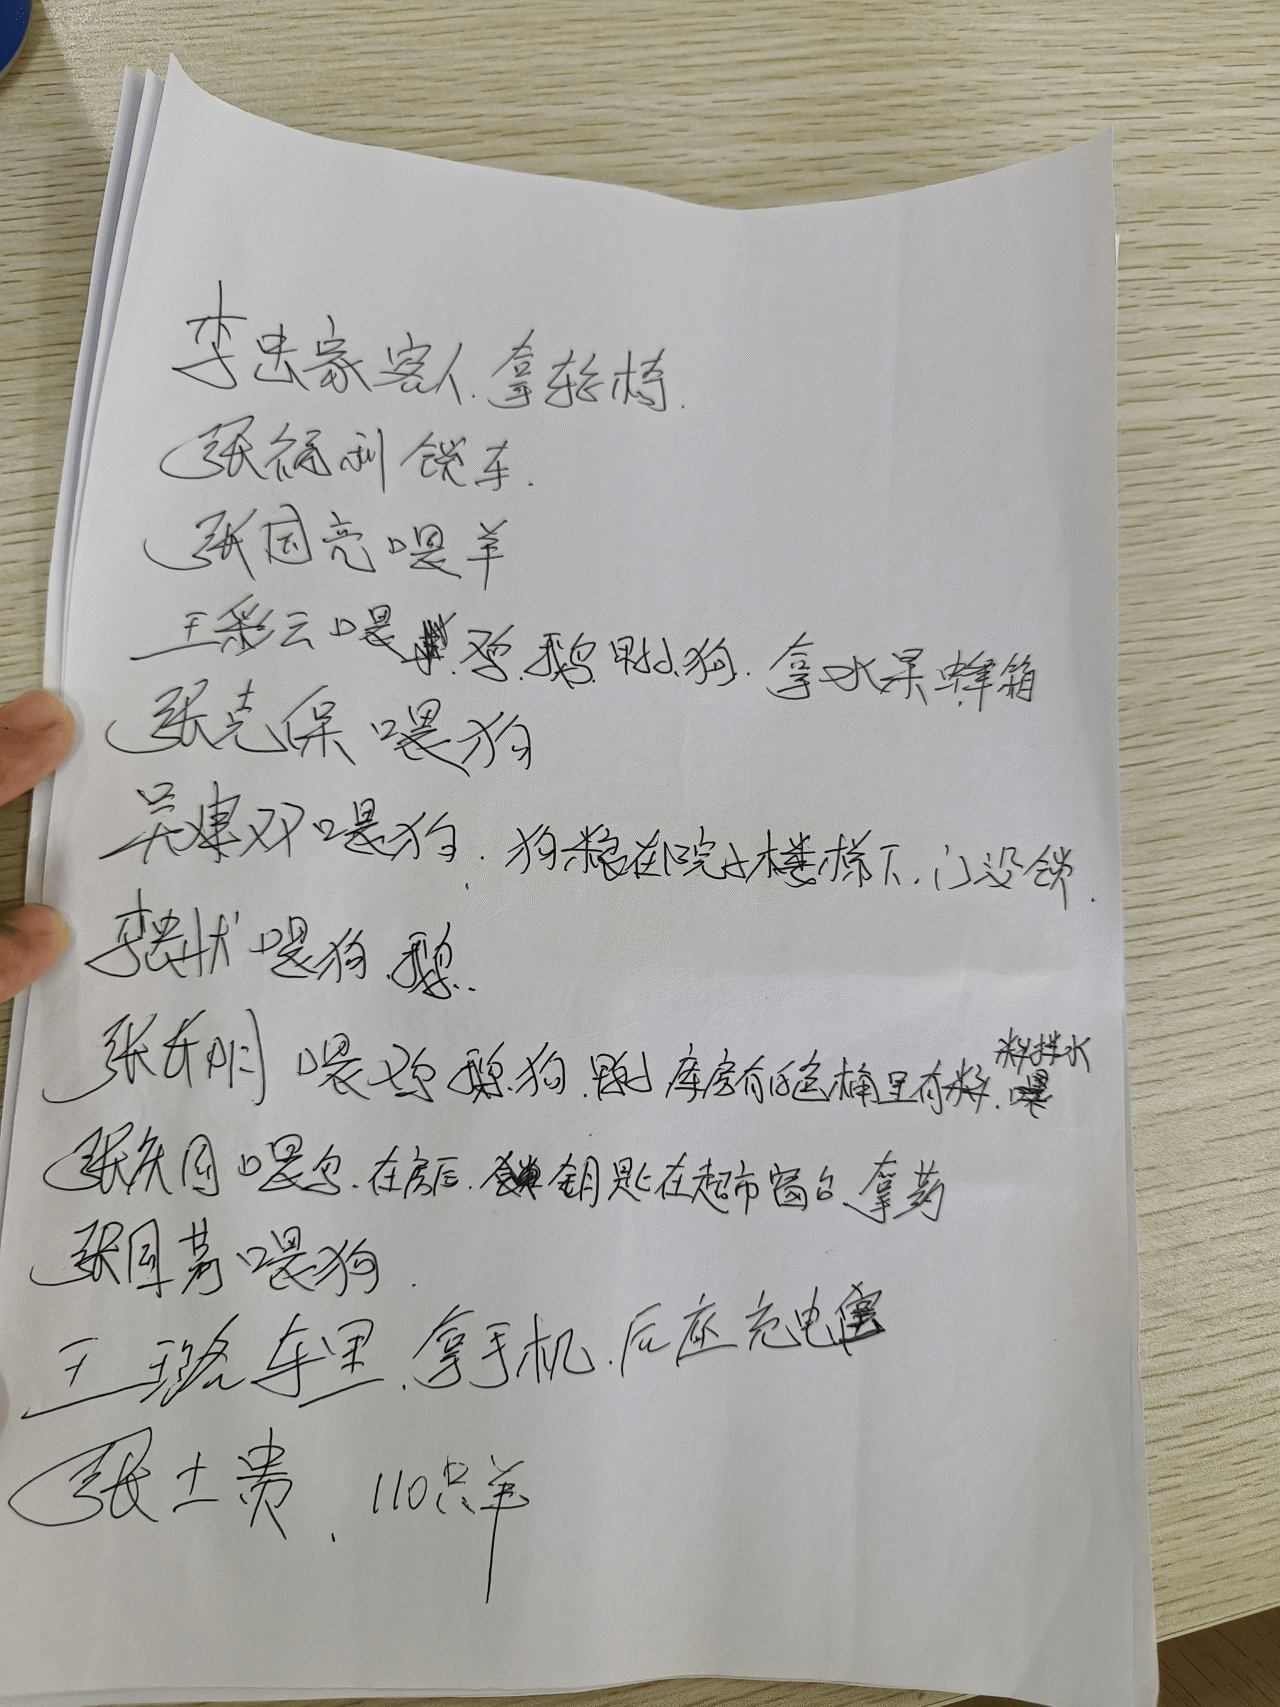 李忠家客人.拿轮椅.
张福利锁车.
张国亮喂羊
王彩云喂 鸡.鹅.鸭.狗.拿水果蜂箱
张克保喂狗
吴建双喂狗.狗粮在院子楼梯下.门没锁.
李忠状喂狗.鹅..
张东明 喂鸡.鹅.狗.鸭 库房有白色桶里有料.料拌水
张庆国喂鸟.在房后.钥匙在超市窗台.拿药
张国芳喂狗.
王璐车里.拿手机.后座充电宝
张士贵.110只羊